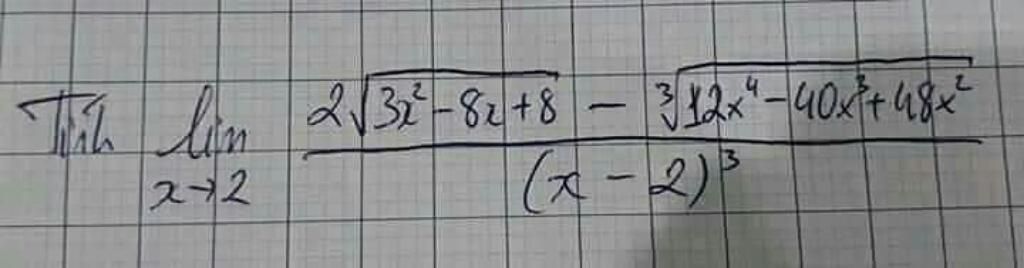 Tính lim x→2 (2√(3x² - 8x + 8) - ³√(12x⁴ - 40x³ + 48x²)) / (x - 2)³